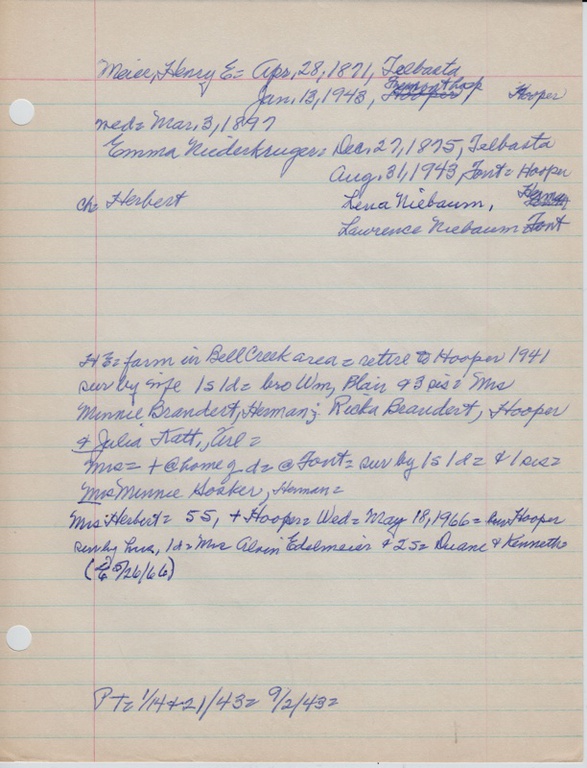 Meier, Henry E= Apr, 28, 1871, Telbasta
Fremont hosp
Jan. 13, 1943, Hooper Hooper
med= Mar. 3, 1897
Emma Niederkruger= Dec. 27, 1875, Telbasta
Aug. 31, 1943, Font= Hooper
ch= Herbert Lena Niebaum,
Lawrence Niebaum= Font
HE= farm in Bell Creek area= retire to Hooper 1941
sur by wife 1s 1d= bro Wm, Blair & 3 sis= Mrs
Minnie Brandert, Herman; Ricka Brandert, Hooper
& Julia Katt, Arl=
Mrs= + @ home of d= @ Font= sur by 1s 1d= & 1 sis=
Mrs Minnie Hosker, Herman=
Mrs Herbert= 55, + Hooper= Wed= May 18, 1966= bur Hooper
sur by hus, 1d= Mrs Alvin Edelmeier & 2s= Duane & Kenneth=
5/26/66)
PT= 1/14 & 21/43= 9/2/43=